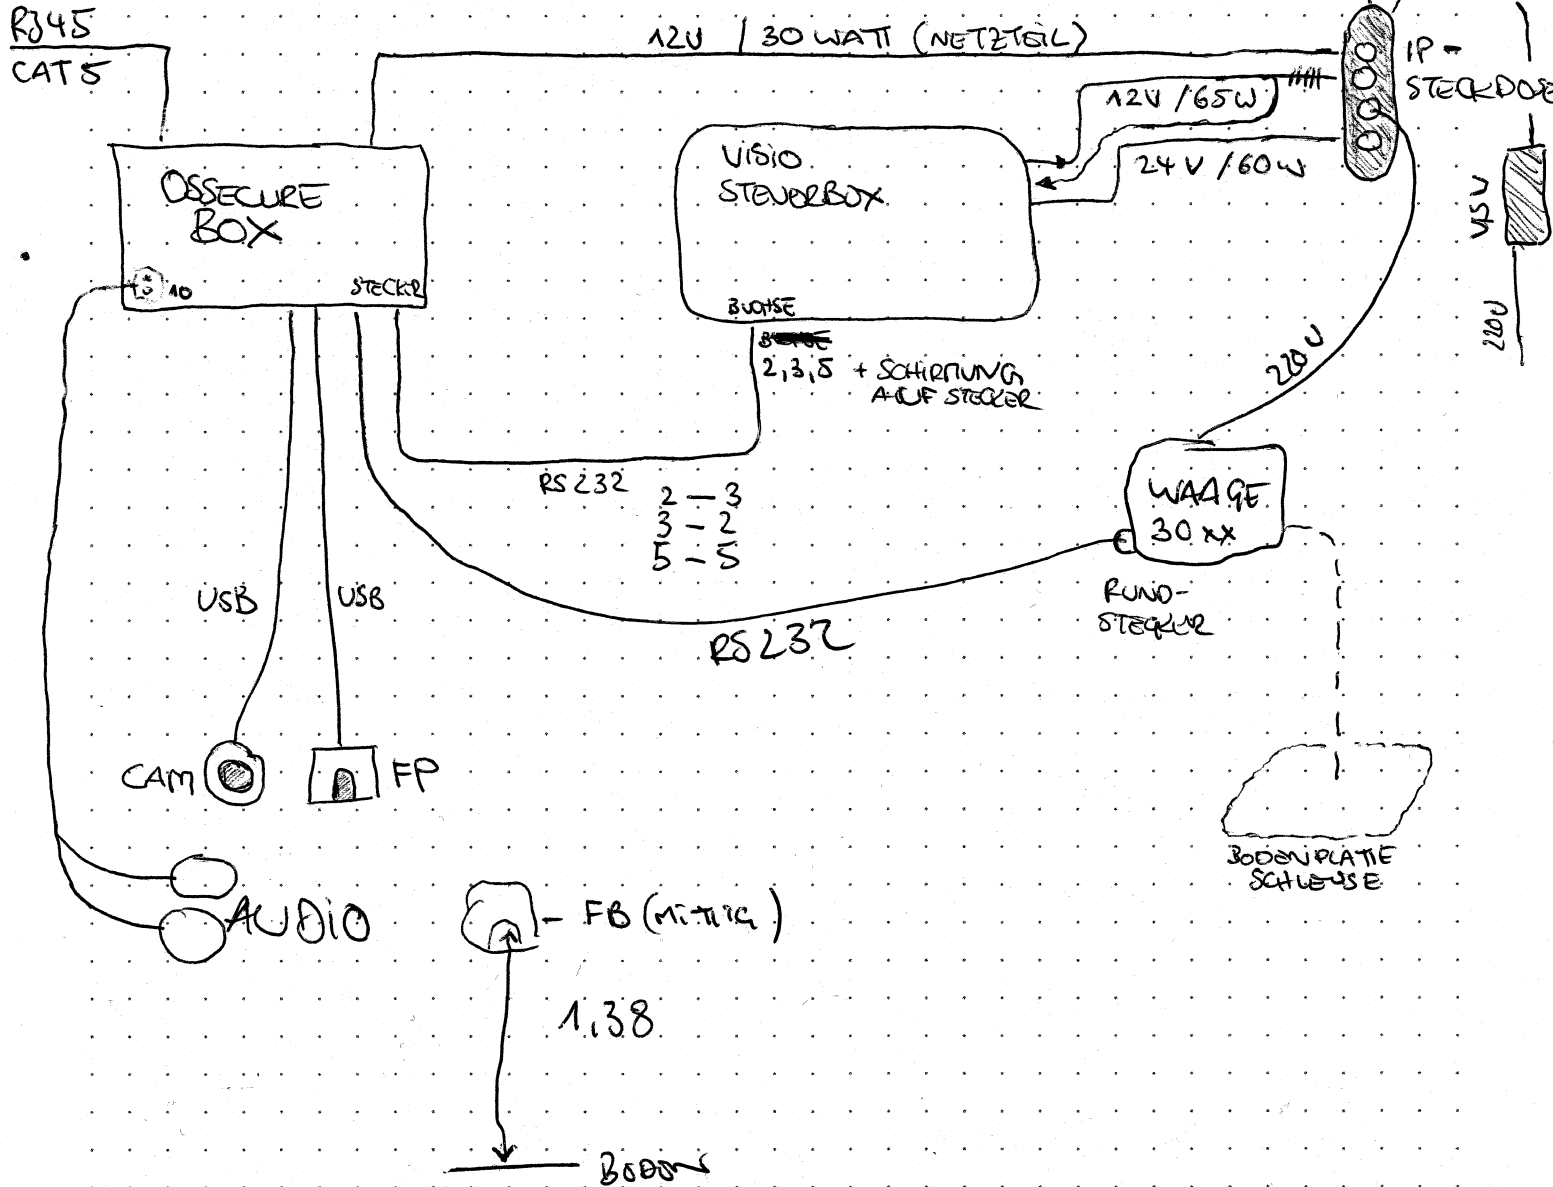 RJ45
CAT5
12V / 30 WATT (NETZTEIL)
IP-
STECKDOSE
12V / 65W
24V / 60W
OSSECURE
BOX
STECKER
10
VISIO
STEUERBOX
BUCHSE
2,3,5 + SCHIRMUNG
AUF STECKER
USV
220V
220V
RS232
2 – 3
3 – 2
5 – 5
WAAGE
30xx
RUND-
STECKER
RS232
USB
USB
CAM
FP
BODENPLATTE
SCHLEUSE
AUDIO
– FB (MITTIG)
1,38
BODEN